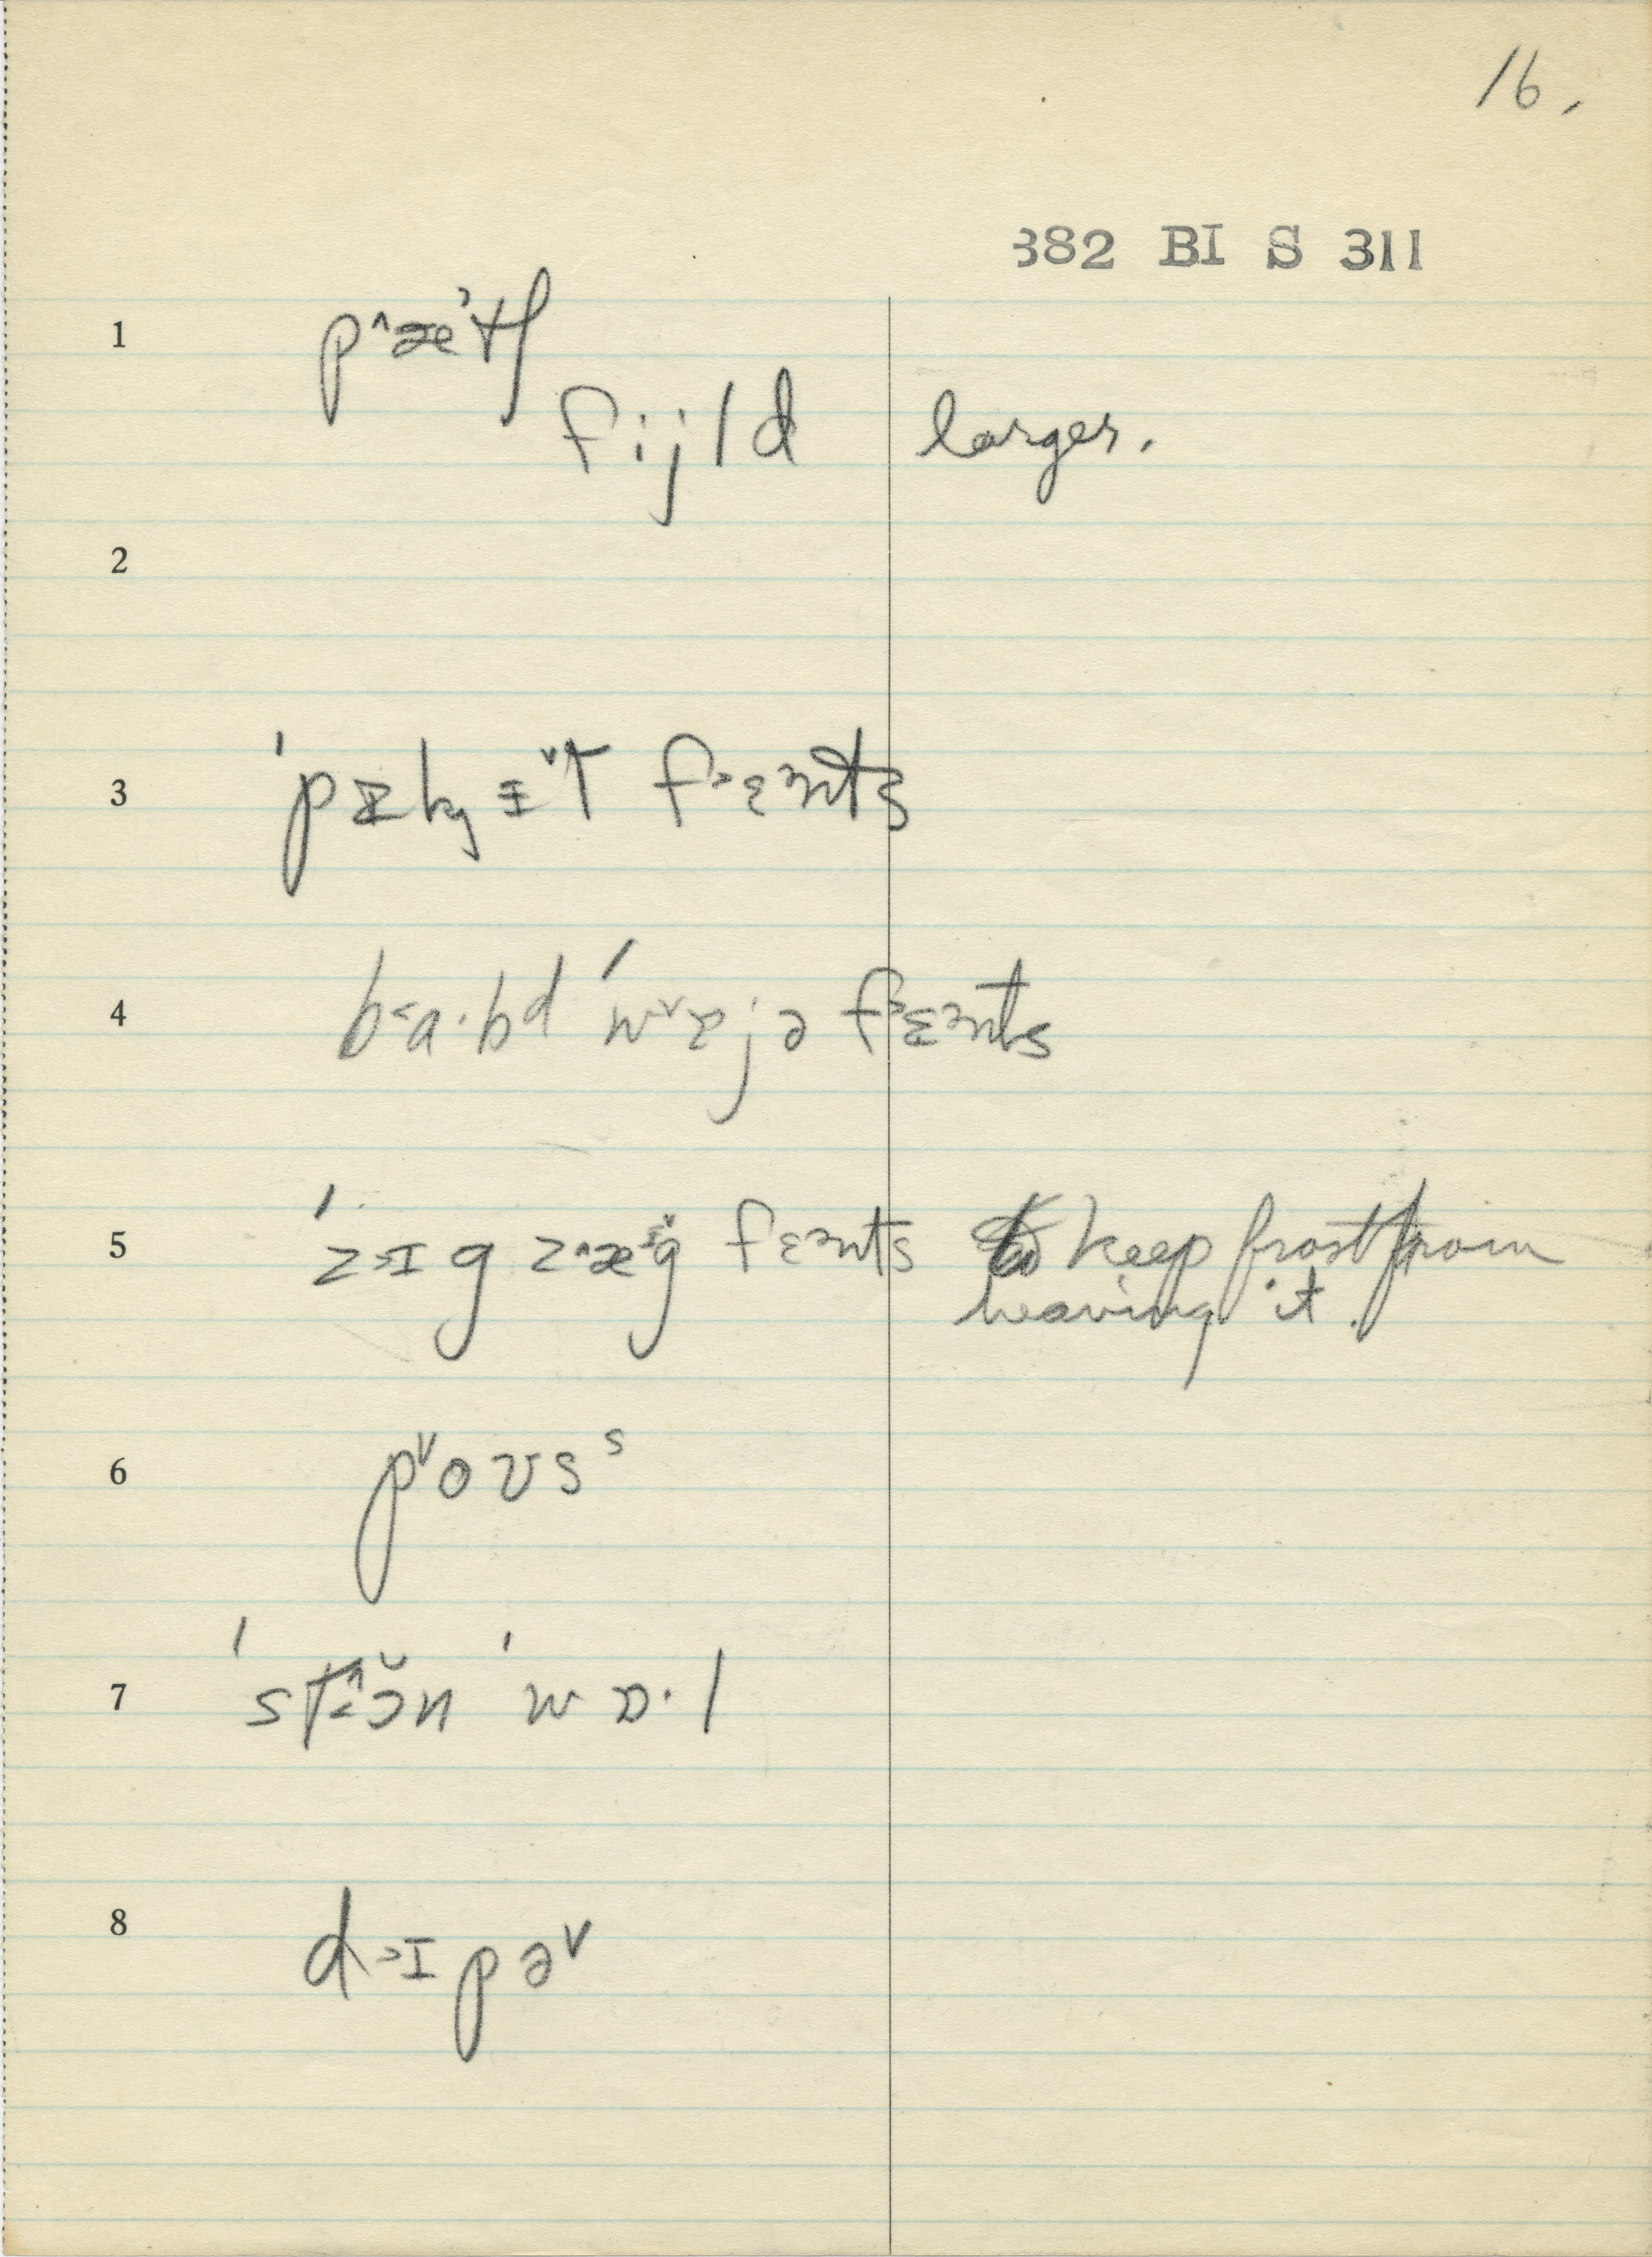 16.
382 BI S 311
1 p^æ'tʃ
fijld larger.
2
3
4 b˂a·bd 'wˇɒjə f˃ɛnts
5 'z˃ɪg z^æᶤg fɛnts to keep frost from
heaving it.
6 pˇoʊsˢ
7 'st^ɔn 'wɒ·l
8 d˃ɪpəˇ